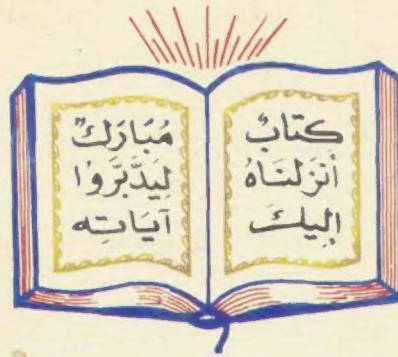 كتابٌ
أنزَلنَاهُ
إليكَ
مُبَارَكٌ
لِيَدَّبَّرَوُا
آيَاتِه